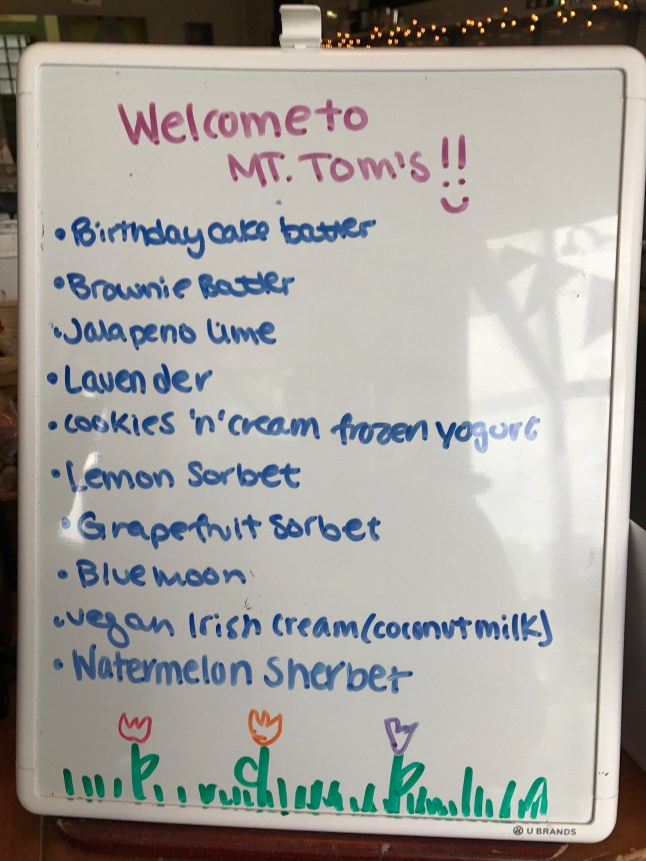 Welcome to
MT. Tom's!!
• Birthday cake batter
• Brownie Batter
• Jalapeno Lime
• Lavender
• cookies 'n' cream frozen yogurt
• Lemon Sorbet
• Grapefruit Sorbet
• Blue moon
• vegan Irish cream (coconut milk)
• Watermelon Sherbet
U BRANDS